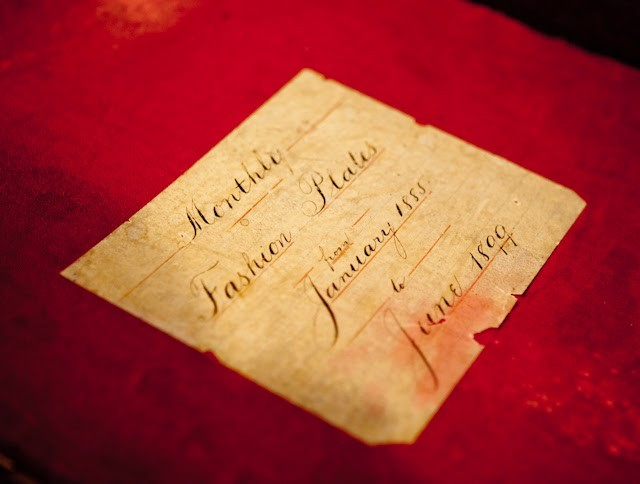 Monthly
Fashion Plates
from
January 1888
to
June